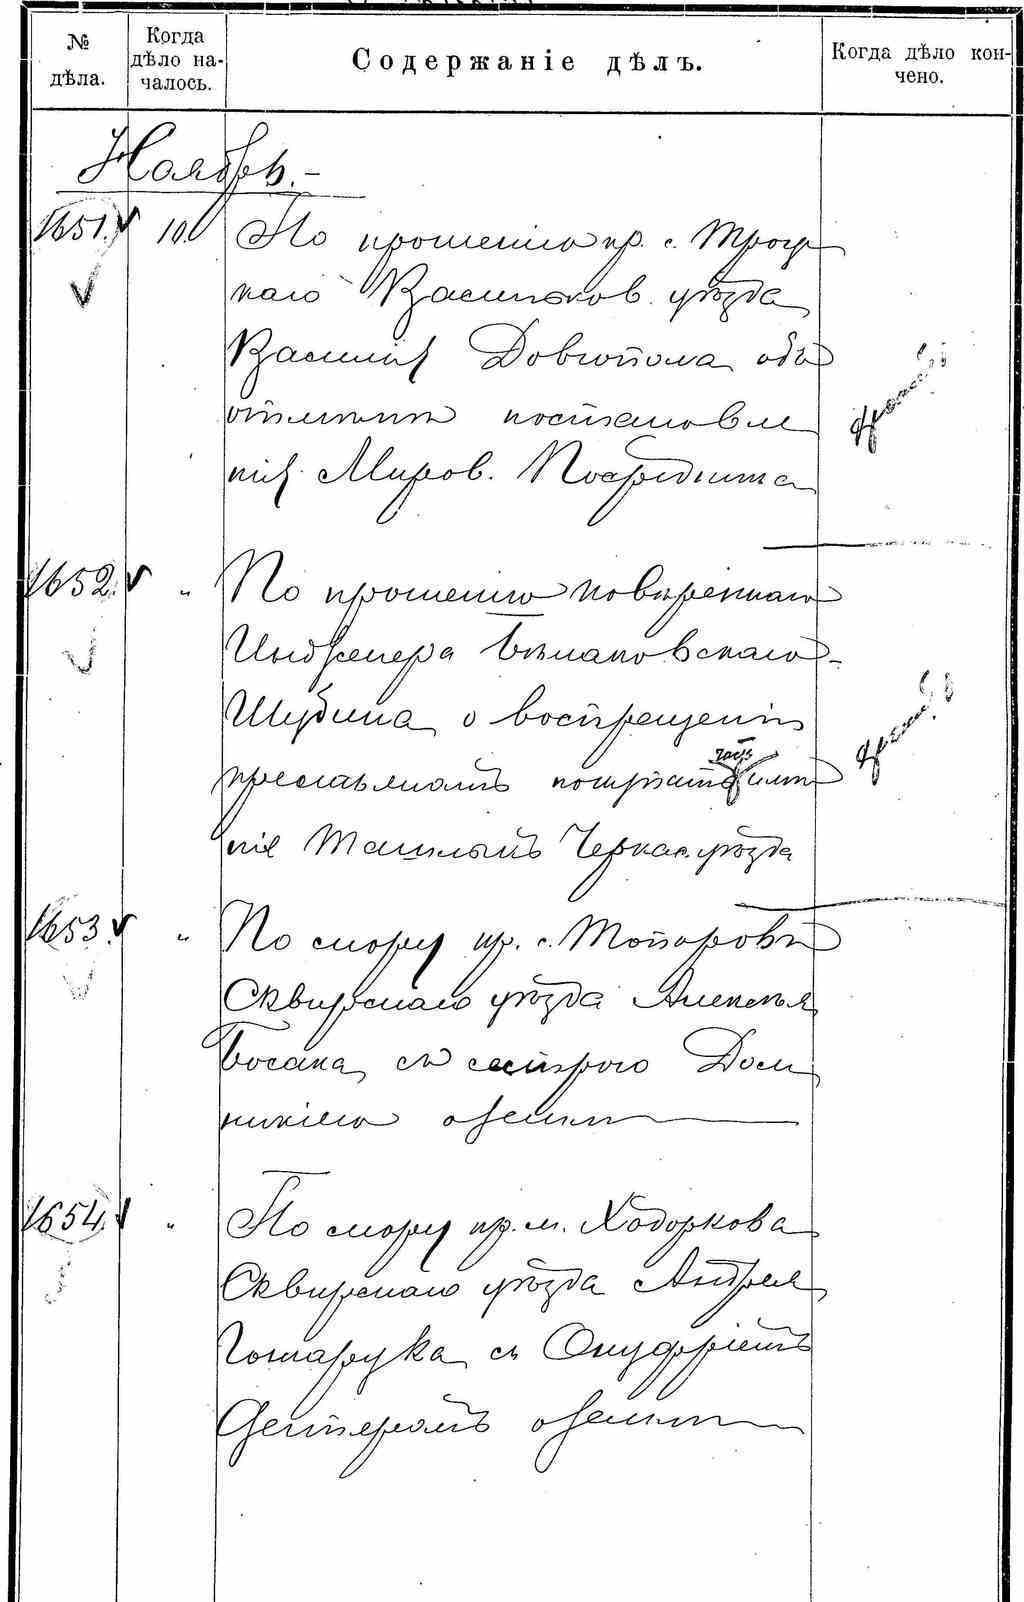 № дѣла.
Когда дѣло началось.
Содержаніе дѣлъ.
Когда дѣло кончено.
Ноябрь.-
1651. 10. По прошенію кр. с. Троц
каго Васильков. уѣзда
Василія Довгопола объ
отмѣнѣ постановле
нія Миров. Посредника
1652. „ По прошенію повѣреннаго
Инженера Бѣлаковскаго-
Шубина о воспрещеніи
крестьянамъ покупать часть имѣ
нія Ташлыкъ Черкас. уѣзда
1653. „ По спору кр. с. Топоровъ
Сквирскаго уѣзда Алексѣя
Босака, съ сестрою Дом
никіею о землѣ
1654. „ По спору кр. м. Ходоркова
Сквирскаго уѣзда Андрея
Гонтарука съ Онуфріемъ
о землѣ